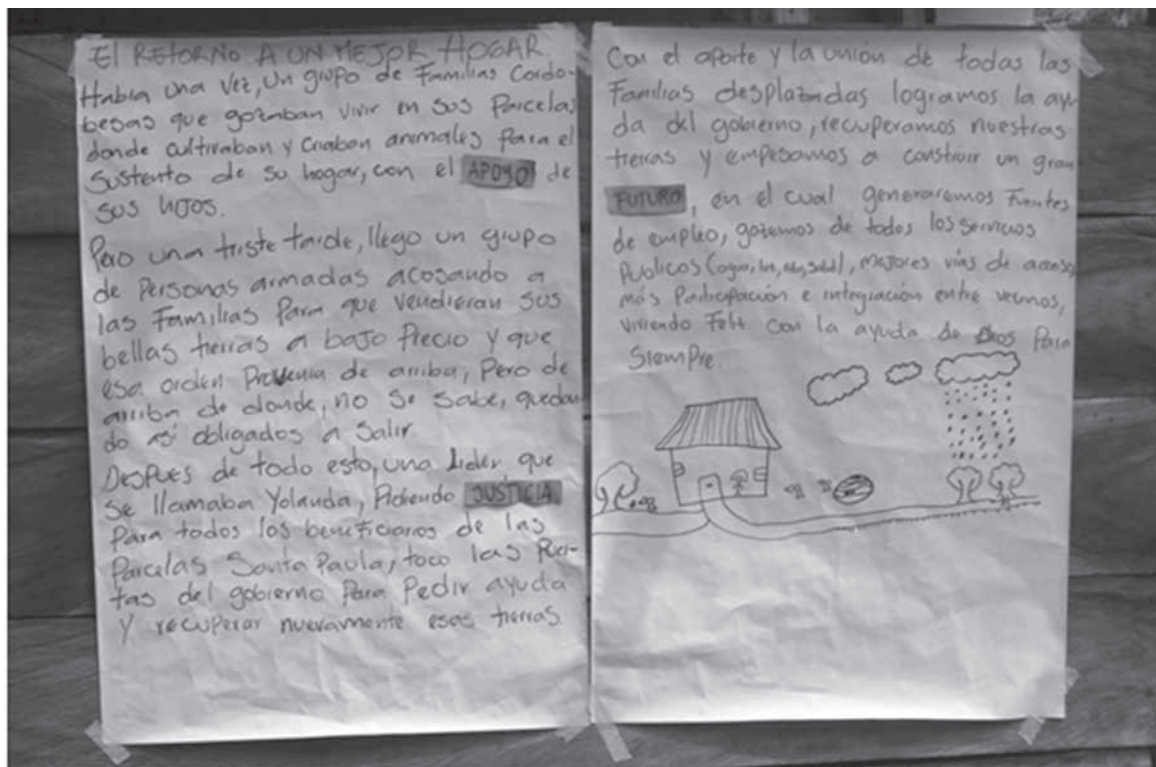 El RETORNO A UN MEJOR HOGAR.
Había una vez, un grupo de Familias Cordo-
besas que gozaban vivir en sus Parcelas
donde cultivaban y criaban animales para el
sustento de su hogar, con el APOYO de
sus hijos.
Pero una triste tarde, llego un grupo
de Personas armadas acosando a
las Familias Para que vendieran sus
bellas tierras a bajo Precio y que
esa orden Provenia de arriba, Pero de
arriba de donde, no se sabe, quedan-
do asi obligados a salir.
Despues de todo esto, una Lider, que
se llamaba Yolanda, Pidiendo JUSTICIA
Para todos los beneficiarios de las
Parcelas Santa Paula, toco las Puer-
tas del gobierno Para Pedir ayuda
Y recuperar nuevamente esas tierras.
Con el aporte y la unión de todas las
Familias desplazadas logramos la ayu-
da del gobierno, recuperamos nuestras
tierras y empesamos a construir un gran
FUTURO, en el cual generaremos Fuentes
de empleo, gozemos de todos los servicios
Publicos (agua, luz, Salud), mejores vías de acceso,
más Participación e integración entre vecinos,
viviendo con la ayuda de Dios Para
Siempre.